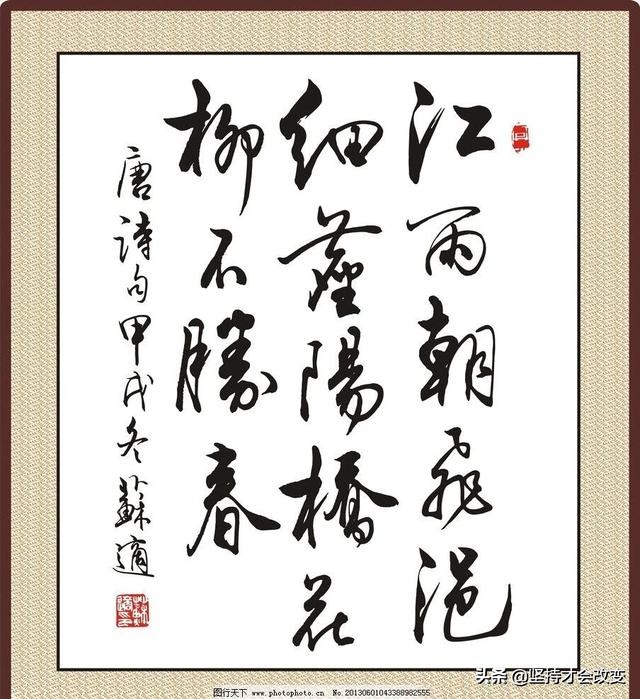 江雨朝飛浥
細塵陽橋花
柳不勝春
唐詩句甲戌冬蘇適
图行天下 www.photophoto.cn No.20130601043388982555
头条 @坚持才会改变